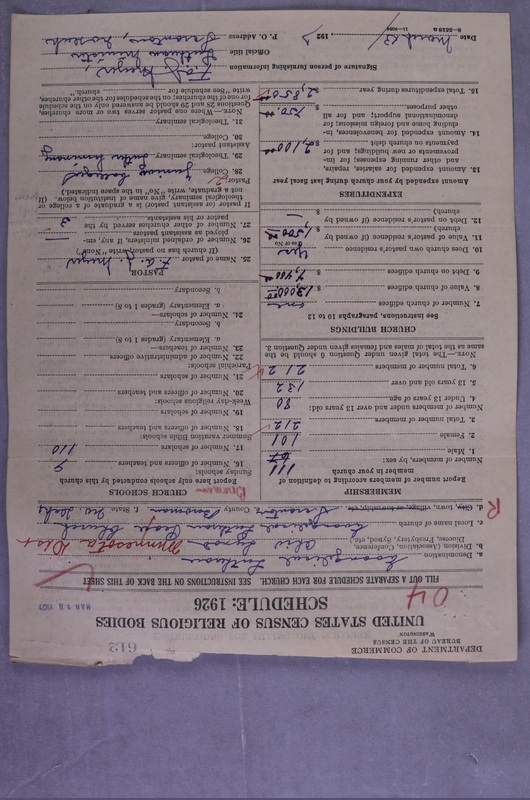 DEPARTMENT OF COMMERCE
BUREAU OF THE CENSUS
WASHINGTON
612
UNITED STATES CENSUS OF RELIGIOUS BODIES
SCHEDULE: 1926
04
FILL OUT A SEPARATE SCHEDULE FOR EACH CHURCH. SEE INSTRUCTIONS ON THE BACK OF THIS SHEET
a. Denomination Evangelical Lutheran
b. Division (Association, Conference, Diocese, Presbytery, Synod, etc. Ohio Synod Minnesota Dist
c. Local name of church Evangelical Lutheran Church
d. City, town, village, or township, etc. County State
R
MEMBERSHIP
Report number of members according to definition of member in your church
Number of members, by sex:
1. Male 111
2. Female 101
3. Total number of members 212
Number of members under and over 13 years old:
4. Under 13 years of age 80
5. 13 years old and over 132
6. Total number of members 212
NOTE.—The total given under Question 6 should be the same as the total of males and females given under Question 3.
CHURCH BUILDINGS
See instructions, paragraphs 10 to 12
7. Number of church edifices one
8. Value of church edifices $
9. Debt on church edifices $
10. Does church own pastor's residence Yes
(Yes or No)
11. Value of pastor's residence (if owned by church) $
12. Debt on pastor's residence (if owned by church) $ —
EXPENDITURES
Amount expended by church during last fiscal year
13. Amount expended for salaries, repairs, and other running expenses; for improvements or new buildings; and for payments on church debt $ 2,100.00
14. Amount expended for benevolences, including home and foreign missions; for denominational support; and for all other purposes $ 750.00
15. Total expenditures during year $ 2,850.00
CHURCH SCHOOLS
Report here only schools conducted by this church
Sunday schools:
16. Number of officers and teachers 9
17. Number of scholars 110
Summer vacation Bible schools:
18. Number of officers and teachers
19. Number of scholars
Week-day religious schools:
20. Number of officers and teachers
21. Number of scholars
Parochial schools:
22. Number of administrative officers
23. Number of teachers—
a. Elementary (grades 1 to 8)
b. Secondary
24. Number of scholars—
a. Elementary (grades 1 to 8)
b. Secondary
PASTOR
25. Name of pastor
(If church has no pastor, write "None")
26. Number of ordained ministers, if any, employed as assistant pastors —
27. Number of other churches served by the pastor or his assistants 3
If pastor (or assistant pastor) is a graduate of college or theological seminary, give name of institution below. (If not a graduate, write "No" in the space indicated.)
Pastor:
28. College
29. Theological seminary
Assistant pastor:
30. College
31. Theological seminary
NOTE.—Where one pastor serves two or more churches, Questions 25 and 29 should be answered only on the schedule for one of the churches; on the schedules for the other churches, write "See schedule for church."
Signature of person furnishing information
Official title Lutheran Minister
P. O. Address
Date March 13, 192